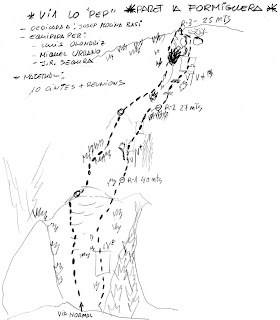 * VIA LO "PEP" * PARET LA FORMIGUERA *
- DEDICADA A: JOSEP MAGINA BASI
- EQUIPADA PER:
- LLUIS OLONDRIZ
- MIQUEL URBANO
- J.R. SEGURA
* MATERIAL:
10 CINTES + REUNIONS
R-3 - 25 MTS
V+
R-2 27 MTS
R-1 40 MTS
VIA NORMAL